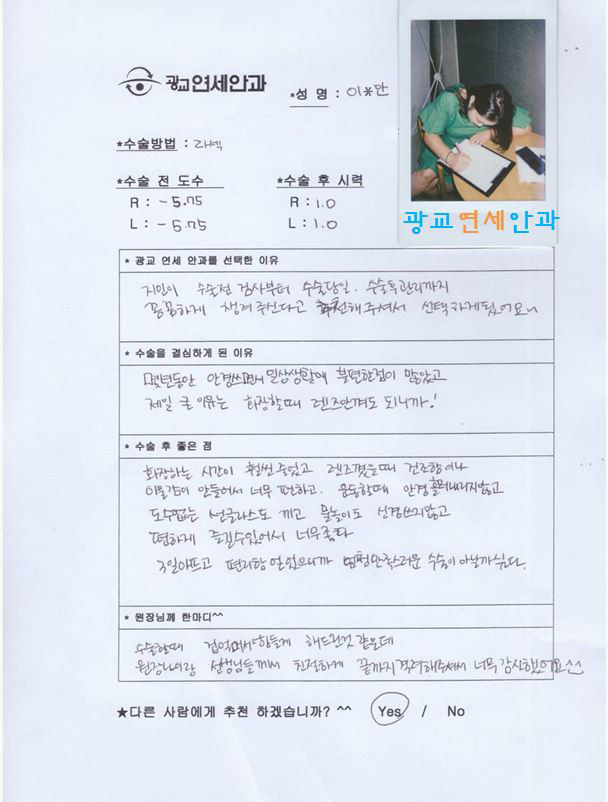 광교연세안과
*성 명 : 이*만
*수술방법 : 라섹
*수술 전 도수
*수술 후 시력
R : -5.75
R : 1.0
L : -5.75
L : 1.0
광교연세안과
* 광교 연세 안과를 선택한 이유
지인이 수술전 검사부터 수술당일, 수술후관리까지
꼼꼼하게 챙겨주신다고 추천해주셔서 선택하게됬어요~
* 수술을 결심하게 된 이유
몇년동안 안경쓰면서 일상생활에 불편한점이 많았고
제일 큰 이유는 화장할때 렌즈안껴도 되니까!
* 수술 후 좋은 점
화장하는 시간이 훨씬 줄었고 렌즈꼈을때 건조함이나
이물감이 안들어서 너무 편하고, 운동할때 안경 흘러내리지않고
도수없는 선글라스도 끼고 물놀이도 신경쓰지않고
편하게 즐길수있어서 너무좋다
3일아프고 편리함 얻었으니까 엄청만족스러운 수술이 아닐까싶다.
* 원장님께 한마디^^
수술할때 겁먹어서 힘들게 해드린것 같은데
원장님이랑 선생님들께서 친절하게 끝까지격려해주셔서 너무 감사했어요^^
★다른 사람에게 추천 하겠습니까? ^^ Yes / No